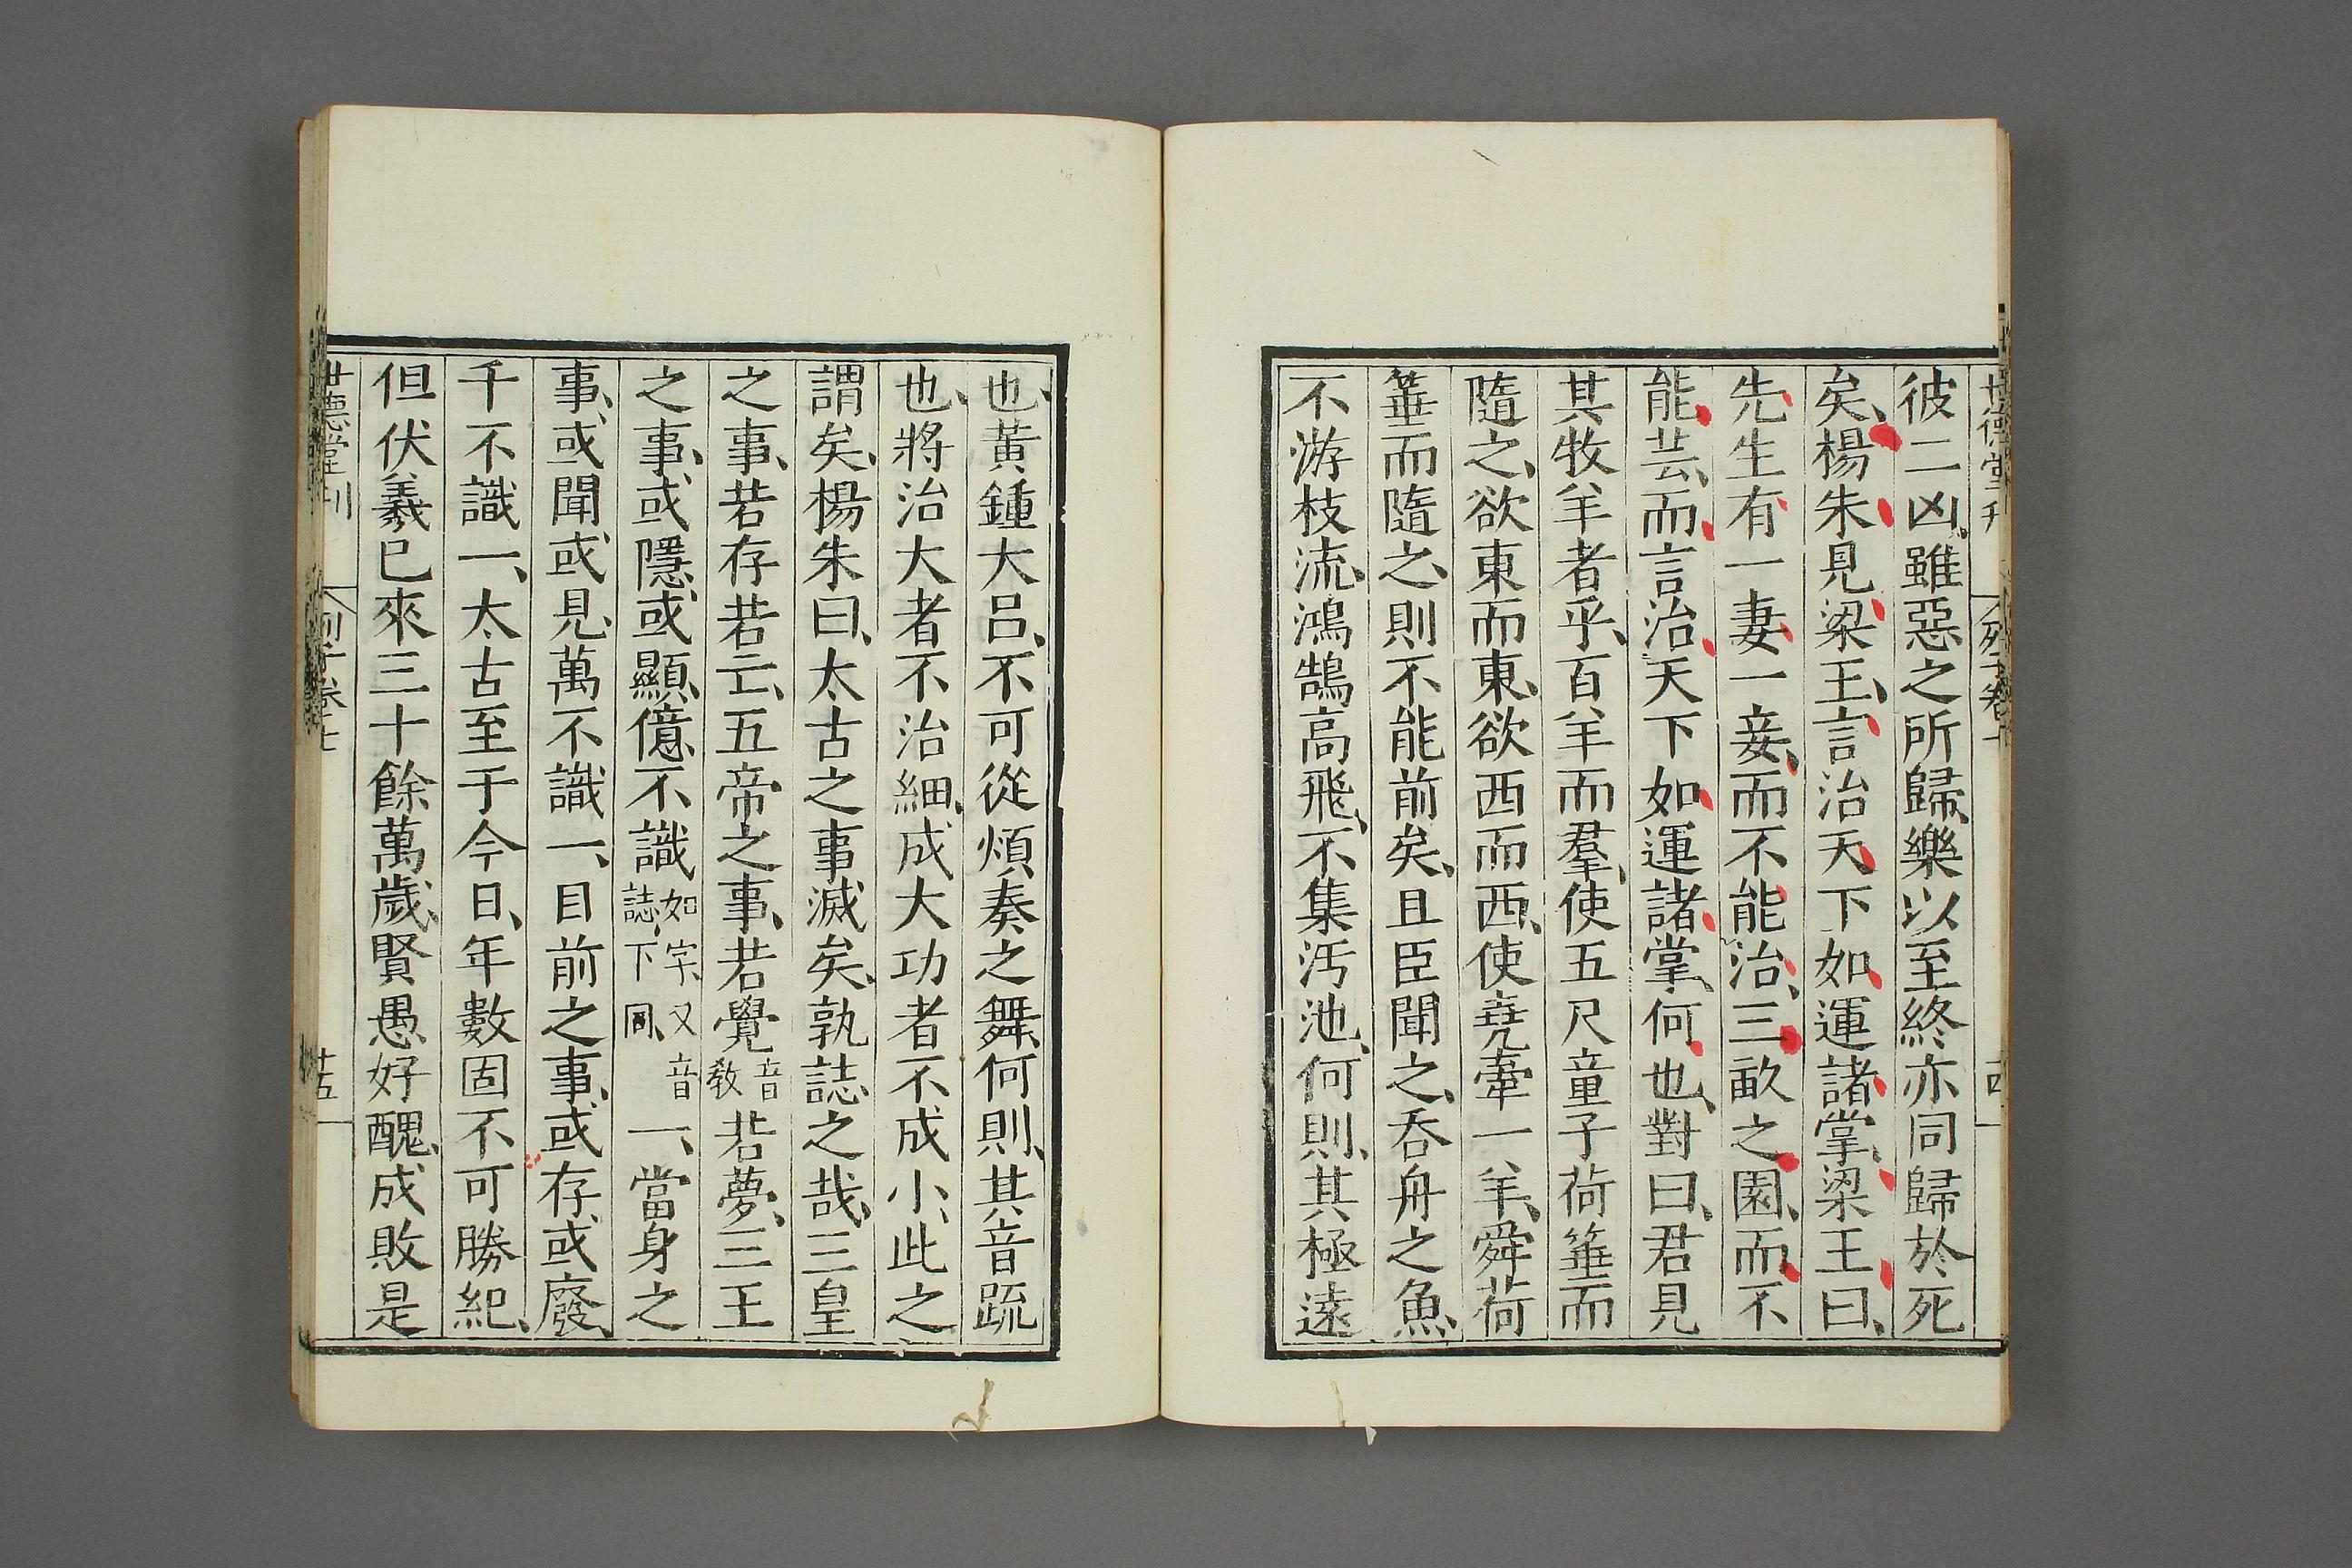 世德堂刊
列子卷七
十四
彼二凶、雖惡之所歸、樂以至終、亦同歸於死
矣、楊朱見梁王、言治天下如運諸掌、梁王曰、
先生有一妻一妾、而不能治、三畝之園、而不
能芸、而言治天下如運諸掌、何也、對曰、君見
其牧羊者乎、百羊而羣、使五尺童子荷箠而
隨之、欲東而東、欲西而西、使堯牽一羊、舜荷
箠而隨之、則不能前矣、且臣聞之、吞舟之魚、
不游枝流、鴻鵠高飛、不集汚池、何則、其極遠
也、黃鍾大呂、不可從煩奏之舞、何則、其音䟽
也、將治大者不治細、成大功者不成小、此之
謂矣、楊朱曰、太古之事滅矣、孰誌之哉、三皇
之事、若存若亡、五帝之事、若覺音教若夢、三王
之事、或隱、或顯、億不識如字、又音誌、下同、一、當身之
事、或聞、或見、萬不識一、目前之事、或存、或廢、
千不識一、太古至于今日、年數固不可勝紀、
但伏羲已來三十餘萬歲、賢愚好醜、成敗是
世德堂刊
列子卷七
十五